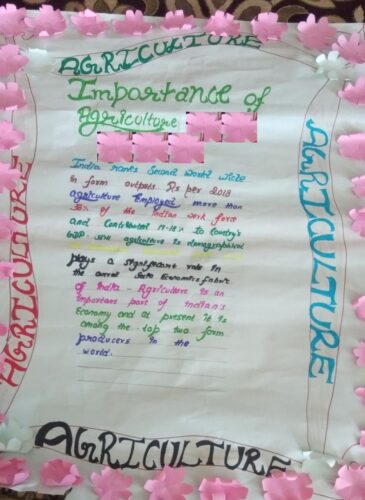 AGRICULTURE
Importance of
Agriculture
India ranks Second World Wide
in form outputs As per 2018
agriculture employed more than
50% of the Indian work force
and contributed 17-18% to country's
GDP.
plays a significance role in
the overall Socio Economics fabric
of India - Agriculture is an
important part of Indian's
Economy and at present it is
among the top two form
producers in the
world.
AGRICULTURE
AGRICULTURE
AGRICULTURE